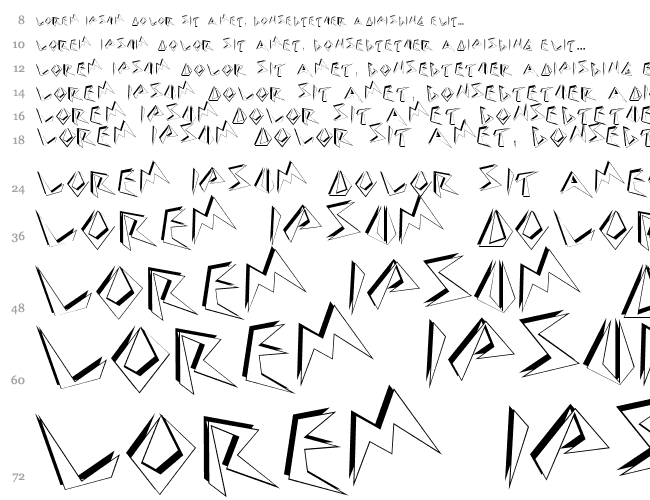 8 LOREM IPSUM DOLOR SIT AMET, CONSECTETUER ADIPISCING ELIT...
10 LOREM IPSUM DOLOR SIT AMET, CONSECTETUER ADIPISCING ELIT...
12 LOREM IPSUM DOLOR SIT AMET, CONSECTETUER ADIPISCING E
14 LOREM IPSUM DOLOR SIT AMET, CONSECTETUER ADI
16 LOREM IPSUM DOLOR SIT AMET, CONSECTETU
18 LOREM IPSUM DOLOR SIT AMET, CONSECT
24 LOREM IPSUM DOLOR SIT AME
36 LOREM IPSUM DOLOR
48 LOREM IPSUM D
60 LOREM IPSUM
72 LOREM IPS